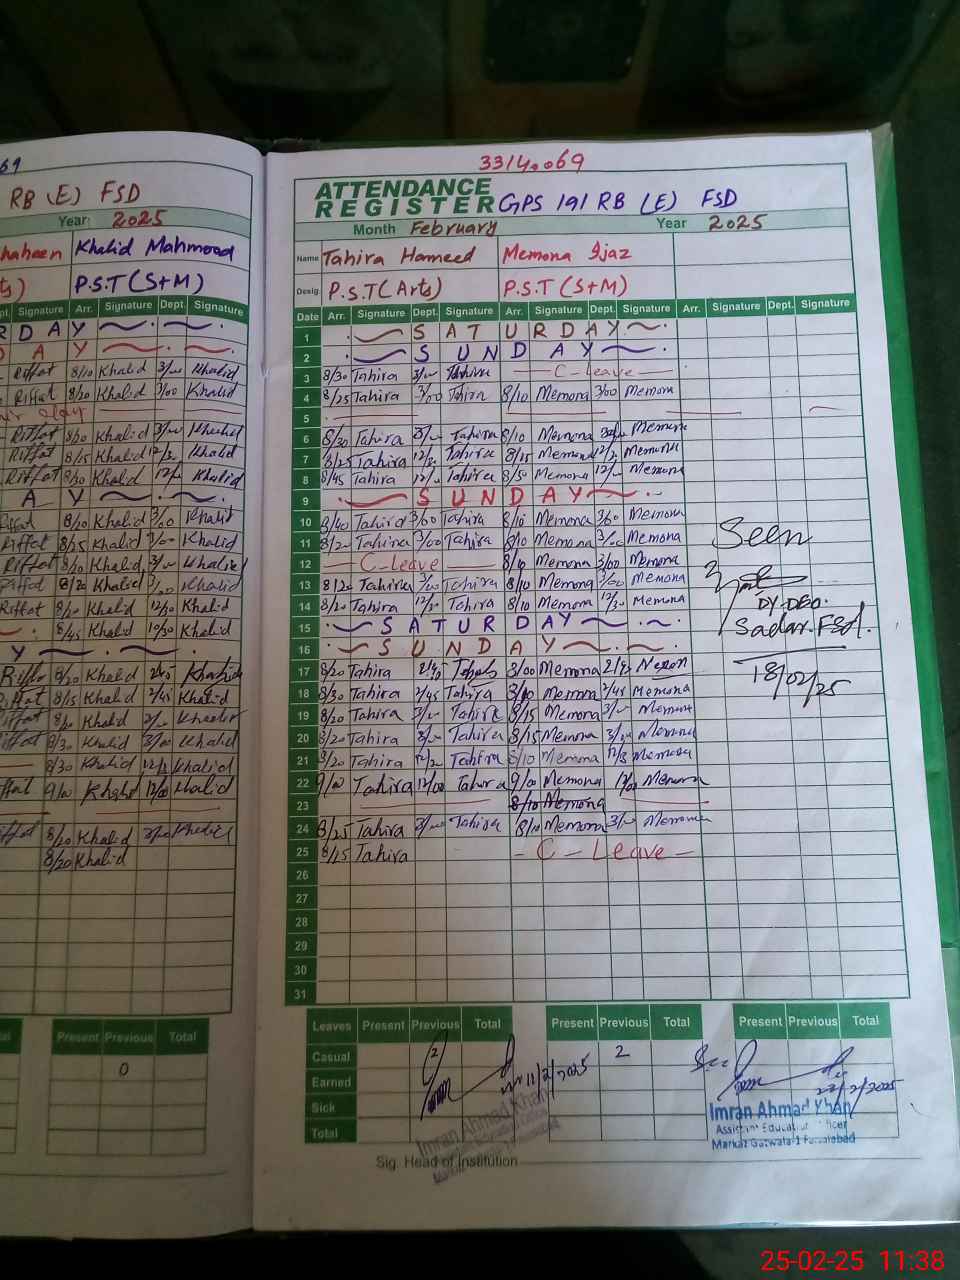 69
3314.069
RB (E) FSD
ATTENDANCE
REGISTER GPS 191 RB (E) FSD
Year: 2025
Month February Year 2025
haheen Khalid Mahmood
Name Tahira Hameed Memona Ijaz
ts) P.S.T (S+M)
Desig. P.S.T (Arts) P.S.T (S+M)
pt. Signature Arr. Signature Dept. Signature
Date Arr. Signature Dept. Signature Arr. Signature Dept. Signature Arr. Signature Dept. Signature
RDAY
1 SATURDAY
DAY
2 SUNDAY
Riffat 8/10 Khalid Khalid
3 8/30 Tahira Tahira C-Leave
Riffat 8/20 Khalid 3/00 Khalid
4 8/25 Tahira 3/00 Tahira 8/10 Memona 3/00 Memona
5
Riffat 8/20 Khalid Khalid
6 8/30 Tahira Tahira 8/10 Memona Memona
Riffat 8/15 Khalid Khalid
7 8/25 Tahira Tahira 8/15 Memona Memona
Riffat 8/30 Khalid Khalid
8 8/45 Tahira Tahira 8/50 Memona Memona
AY
9 SUNDAY
Riffat 8/20 Khalid 3/00 Khalid
10 8/40 Tahira 3/00 Tahira 8/10 Memona 3/00 Memona
Riffat 8/25 Khalid 3/00 Khalid
11 8/20 Tahira 3/00 Tahira 8/10 Memona 3/00 Memona
Riffat 8/20 Khalid Khalid
12 C-Leave 8/10 Memona 3/00 Memona
Riffat 8/20 Khalid Khalid
13 8/20 Tahira 3/00 Tahira 8/10 Memona 3/00 Memona
Riffat 8/20 Khalid 12/30 Khalid
14 8/20 Tahira 12/30 Tahira 8/10 Memona 12/30 Memona
8/45 Khalid 10/30 Khalid
15 SATURDAY
Y
16 SUNDAY
Seen
DY.DEO.
Sadar.FSD.
18/02/25
8/20 Khalid 2/45 Khalid
17 8/20 Tahira 8/00 Memona
Riffat 8/15 Khalid 2/45 Khalid
18 8/30 Tahira 2/45 Tahira Memona 2/45 Memona
Riffat Khalid Khalid
19 8/20 Tahira Tahira 8/15 Memona Memona
8/30 Khalid 3/00 Khalid
20 8/20 Tahira Tahira 8/15 Memona Memona
8/30 Khalid Khalid
21 8/20 Tahira Tahira 8/10 Memona Memona
Riffat 9/00 Khalid 12/00 Khalid
22 9/00 Tahira 12/00 Tahira 9/00 Memona 12/00 Memona
23 8/10 Memona
Riffat 8/20 Khalid Khalid
24 8/25 Tahira Tahira 8/10 Memona Memona
8/20 Khalid
25 8/15 Tahira C-Leave
26
27
28
29
30
31
Present Previous Total
0
Leaves Present Previous Total Present Previous Total Present Previous Total
Casual 2 2
Earned
Sick
Total
11/2/2025
22/2/2025
Imran Ahmad Khan
Imran Ahmad Khan
Assistant Education Officer
Markaz Gatwala-1 Faisalabad
Sig. Head of Institution
25-02-25 11:38